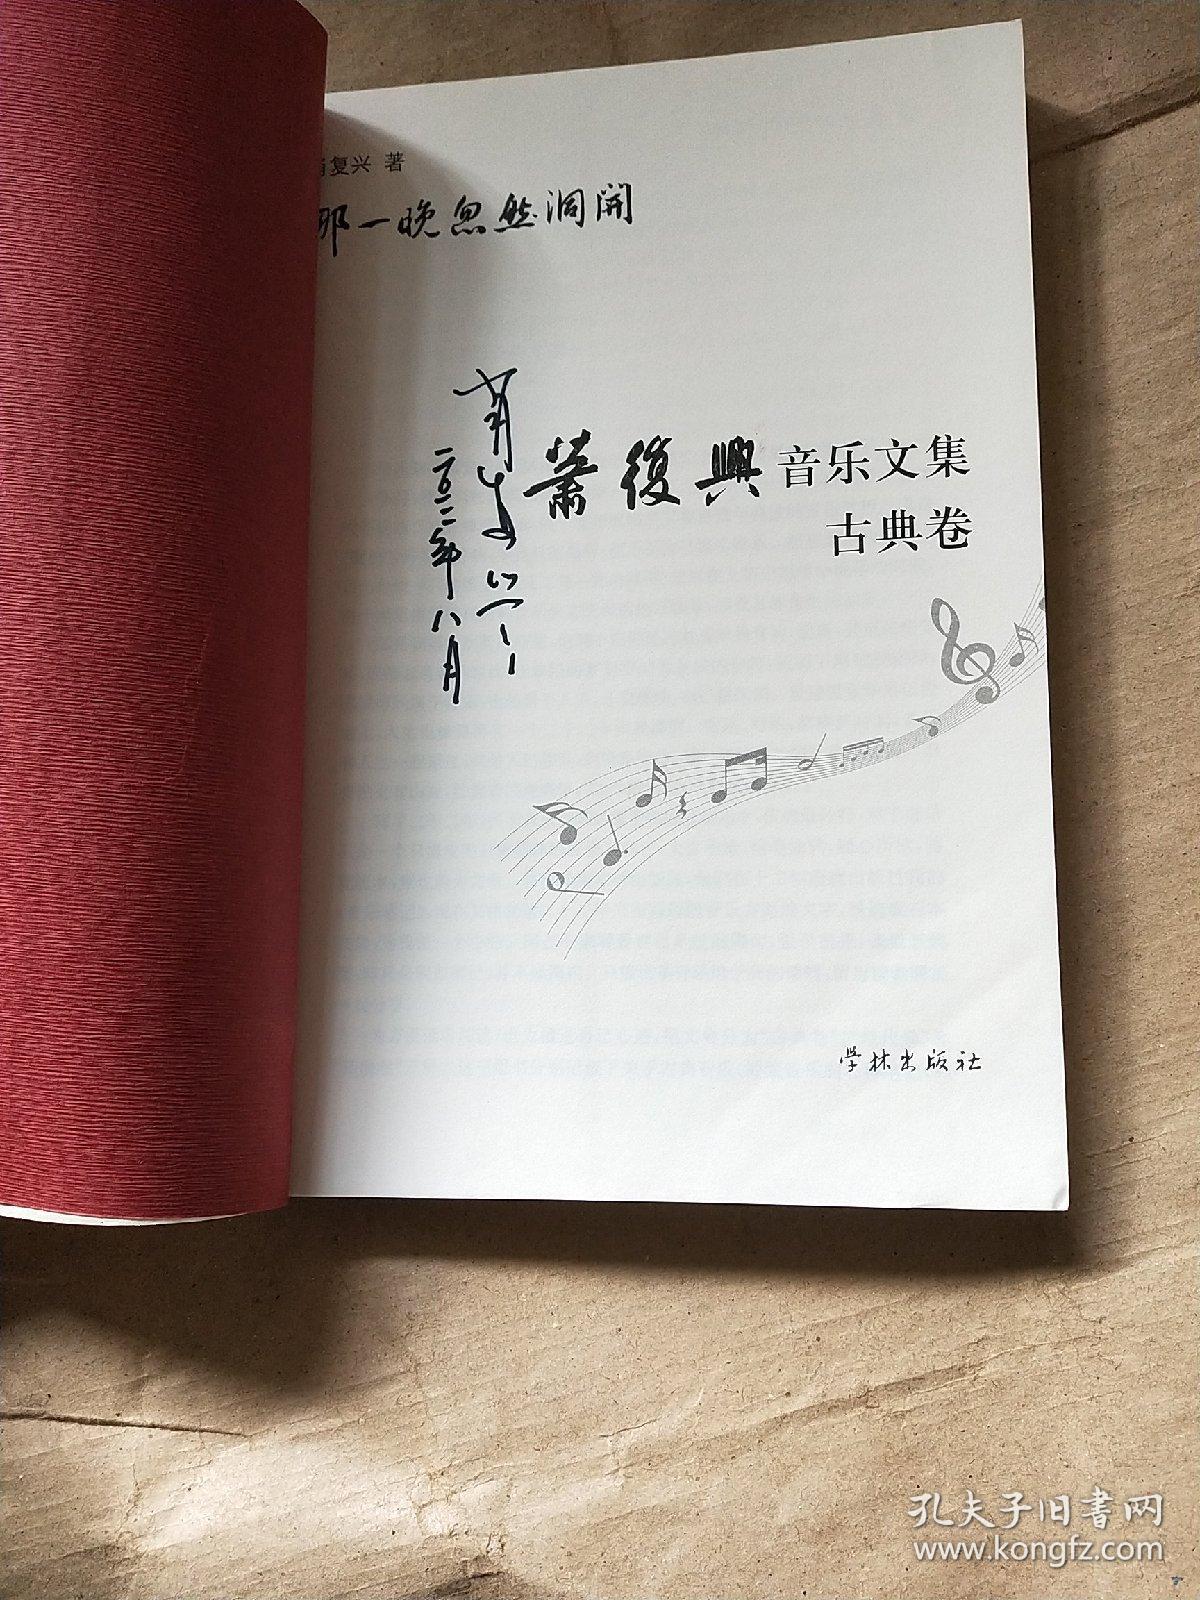 肖复兴 著
那一晚忽然洞開
肖复兴
二〇一二年八月
萧復興音乐文集
古典卷
学林出版社
孔夫子旧书网
www.kongfz.com